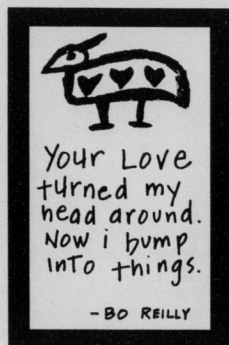 Your Love
turned my
head around.
Now i bump
into things.
-BO REILLY